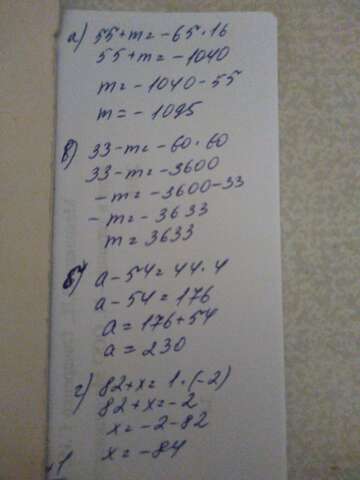 а) 55+m=-65·16
55+m=-1040
m=-1040-55
m=-1095
в) 33-m=-60·60
33-m=-3600
-m=-3600-33
-m=-3633
m=3633
б) a-54=44·4
a-54=176
a=176+54
a=230
г) 82+x=1·(-2)
82+x=-2
x=-2-82
x=-84